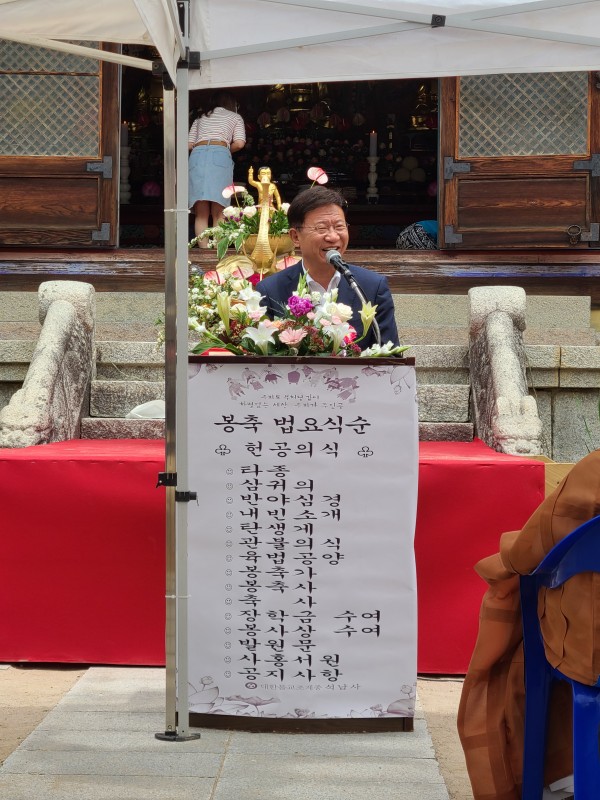 봉축 법요식순
헌공의식
타종
삼귀의
반야심경
내빈소개
탄생게
관불의식
육법공양
봉축가
봉축사
축 사
장학금 수여
봉사상 수여
발원문
사홍서원
공지사항
대한불교조계종 석남사